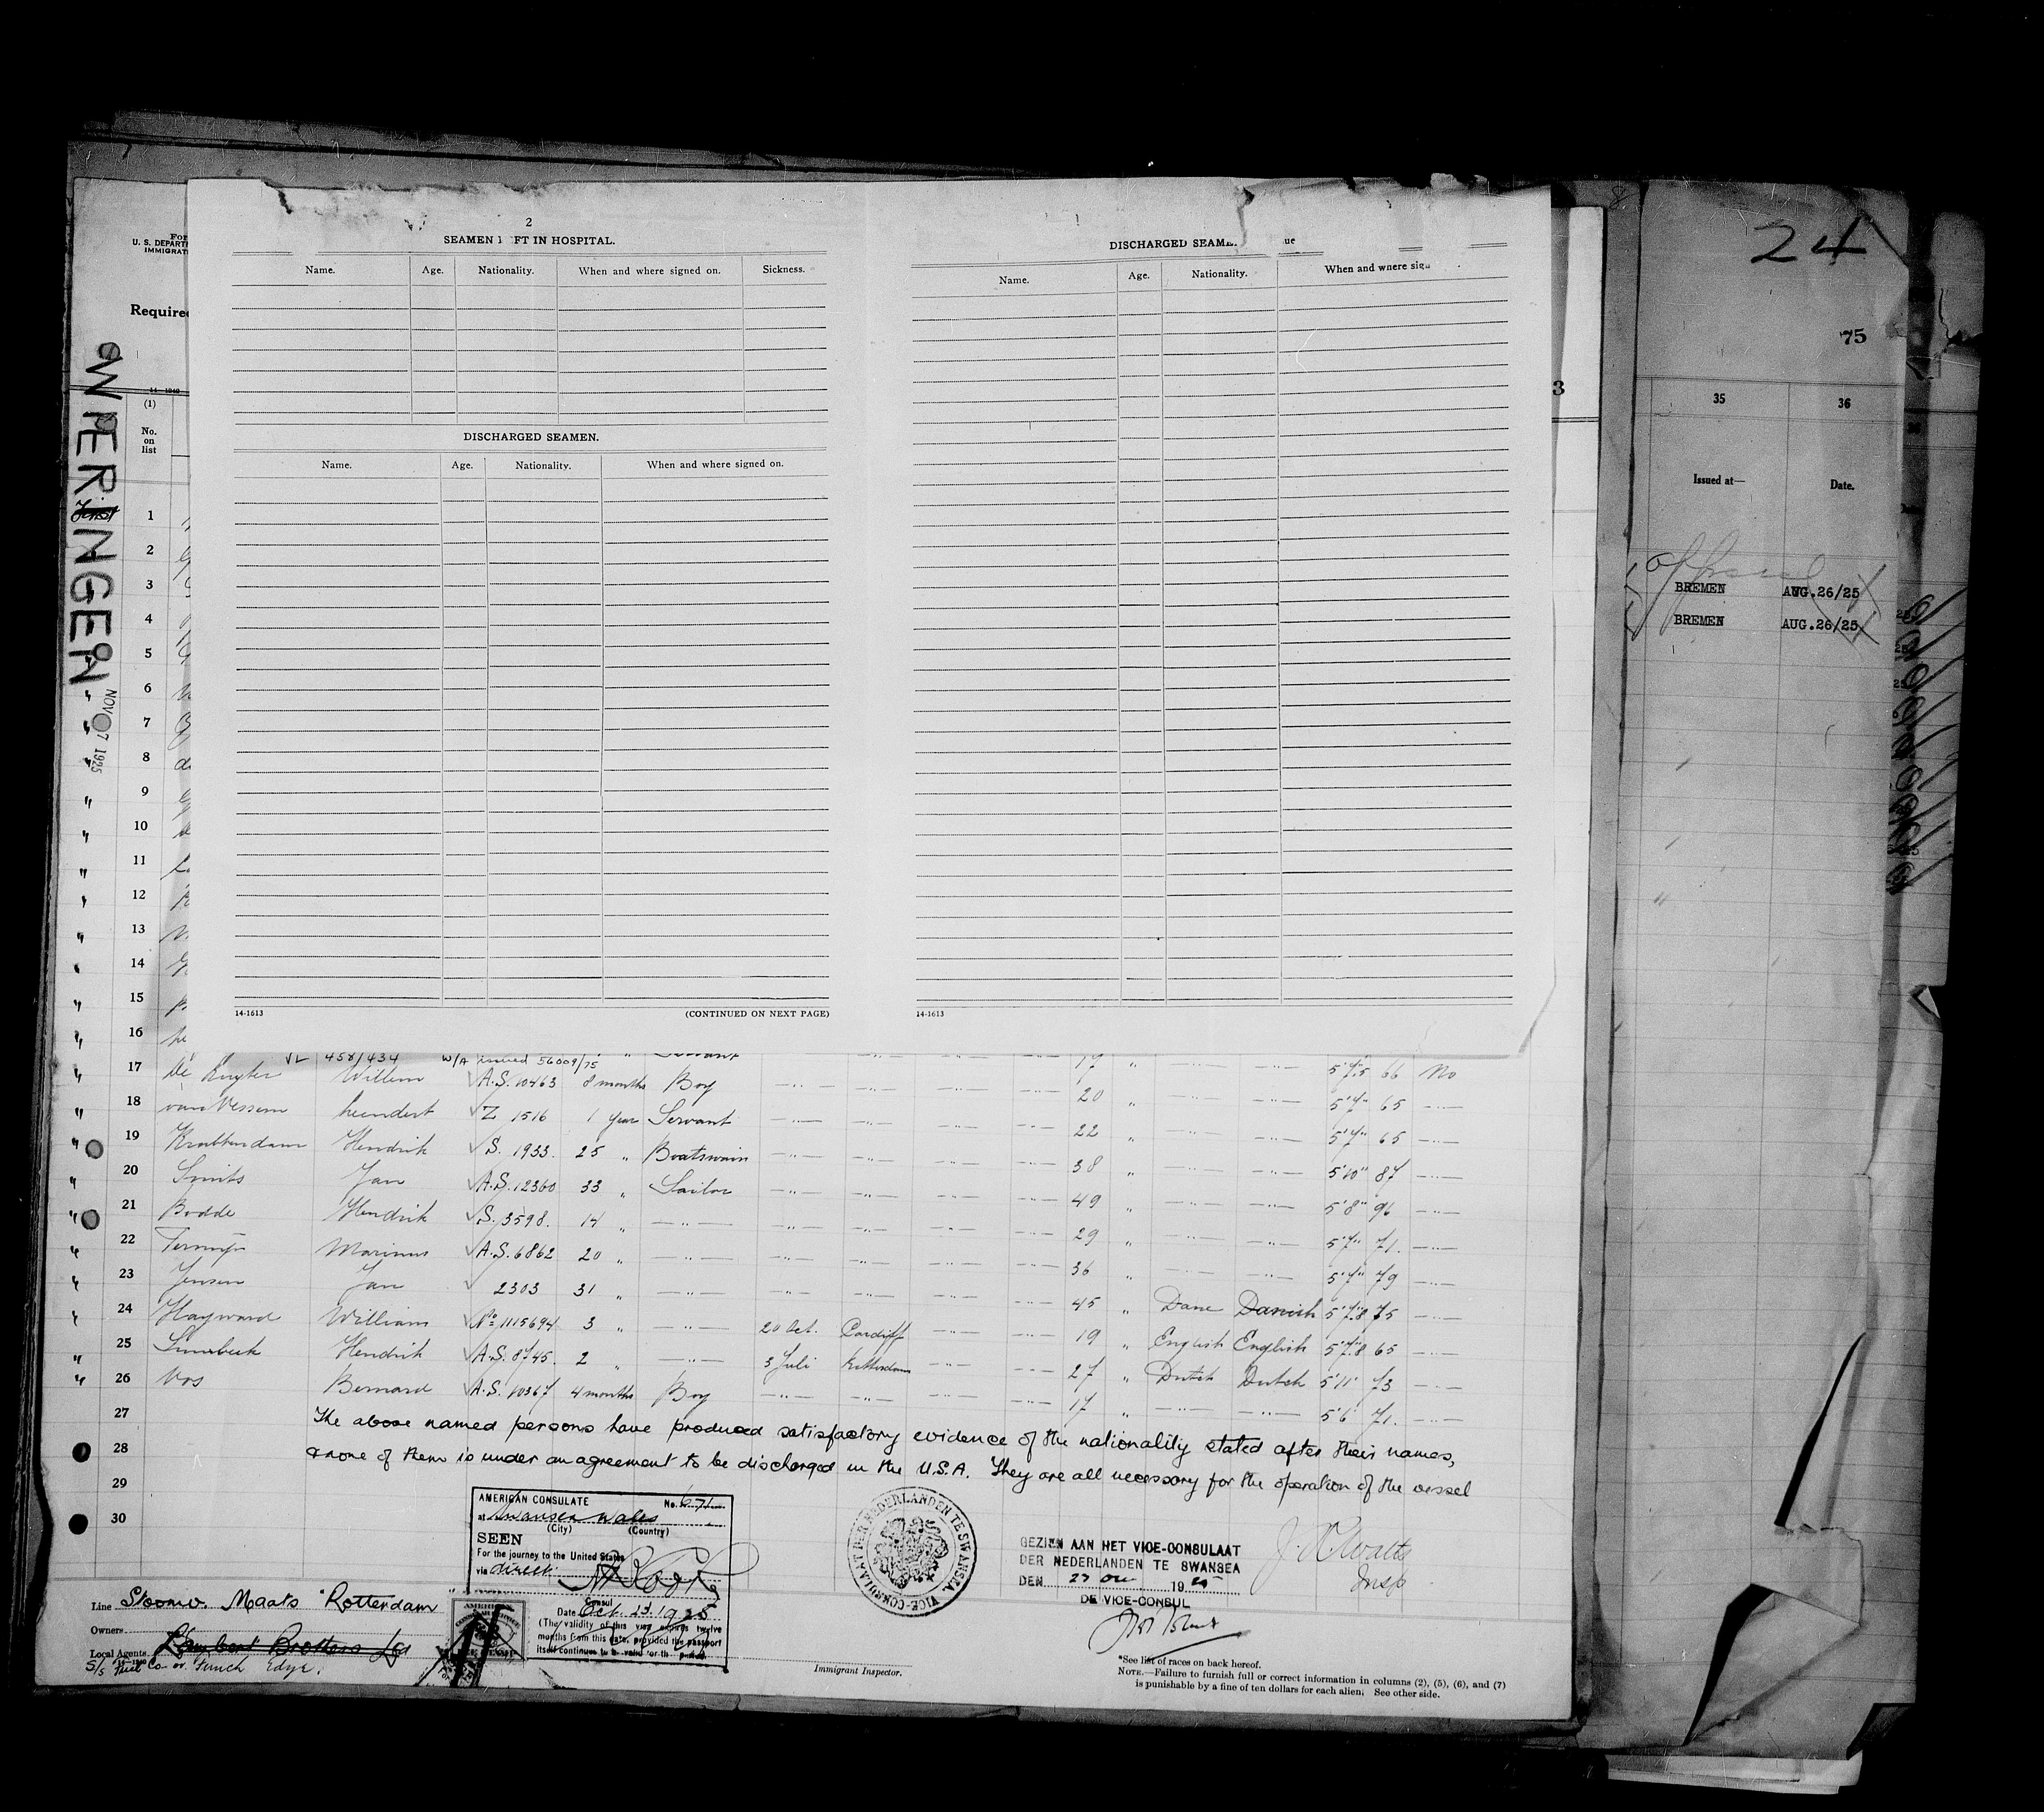 24
75
35 36
Issued at— Date.
BREMEN AUG.26/25
BREMEN AUG.26/25
3
U. S. DEPART
IMMIGRAT
Required
(1)
No.
on
list
WIERINGEN
NOV 07 1925
2
SEAMEN FT IN HOSPITAL.
Name. Age. Nationality. When and where signed on. Sickness.
DISCHARGED SEAMEN.
Name. Age. Nationality. When and where signed on.
14-1613 (CONTINUED ON NEXT PAGE)
DISCHARGED SEAM ue
Name. Age. Nationality. When and where sig
14-1613
1
2
3
4
5
6
7
8
9
10
11
12
13
14
15
16
VL 458/434 W/A issued 56009/75 " Servant 19 " 5'7.5 66 No
17 De Ruyter Willem √ A.S. 10463 8 months Boy —"— —"— —"— —"— 20 " —"— —"— 5'7" 65 —"—
18 van Vessem Leendert √ Z 1516 1 Year Servant —"— —"— —"— 22 " —"— —"— 5'7" 65 —"—
19 Krabbendam Hendrik √ S. 1933. 25 " Boatswain —"— —"— —"— —"— 38 " —"— —"— 5'10" 87 —"—
20 Smits Jan √ A.S. 12360 33 " Sailor —"— —"— —"— —"— 49 " —"— —"— 5'8" 96 —"—
21 Bodde Hendrik √ S. 3598. 14 " —"— —"— —"— —"— —"— 29 " —"— —"— 5'7" 71. —"—
22 Marinus √ A.S. 6862 20 " —"— —"— —"— —"— —"— 36 " —"— —"— 5'7" 79 —"—
23 Jensen Jan √ 2303 31 " —"— —"— —"— —"— —"— 45 " Dane Danish 5'7.8 75 —"—
24 Hayward William √ No 1115694 3 " —"— 20 Oct. Cardiff —"— —"— 19 " English English 5'7.8 65 —"—
25 Hendrik √ A.S. 8745. 2 " —"— 3 Juli Rotterdam —"— —"— 27 " Dutch Dutch 5'11" 73 —"—
26 Vos Bernard √ A.S. 10367 4 months Boy —"— —"— —"— —"— 17 " —"— —"— 5'6 71. —"—
27 The above named persons have produced satisfactory evidence of the nationality stated after their names,
28 & none of them is under an agreement to be discharged in the U.S.A. They are all necessary for the operation of the vessel
29
30
AMERICAN CONSULATE No. 671
at Swansea Wales
(City) (Country)
SEEN
For the journey to the United States
via direct
Consul
Date Oct. 23. 1925
(The validity of this visa expires twelve
months from this date, provided the passport
itself continues to be valid for th
VICE-CONSULAAT DER NEDERLANDEN TE SWANSEA
GEZIEN AAN HET VICE-CONSULAAT
DER NEDERLANDEN TE SWANSEA
DEN 23 Oct 1925
DE VICE-CONSUL
J. Watts
Insp
Line Stoomv. Maats "Rotterdam
Owners
Local Agents Lambert Brothers Ltd
S/s Fuel Co. or Funch Edye.
Immigrant Inspector.
*See list of races on back hereof.
NOTE.—Failure to furnish full or correct information in columns (2), (5), (6), and (7)
is punishable by a fine of ten dollars for each alien. See other side.